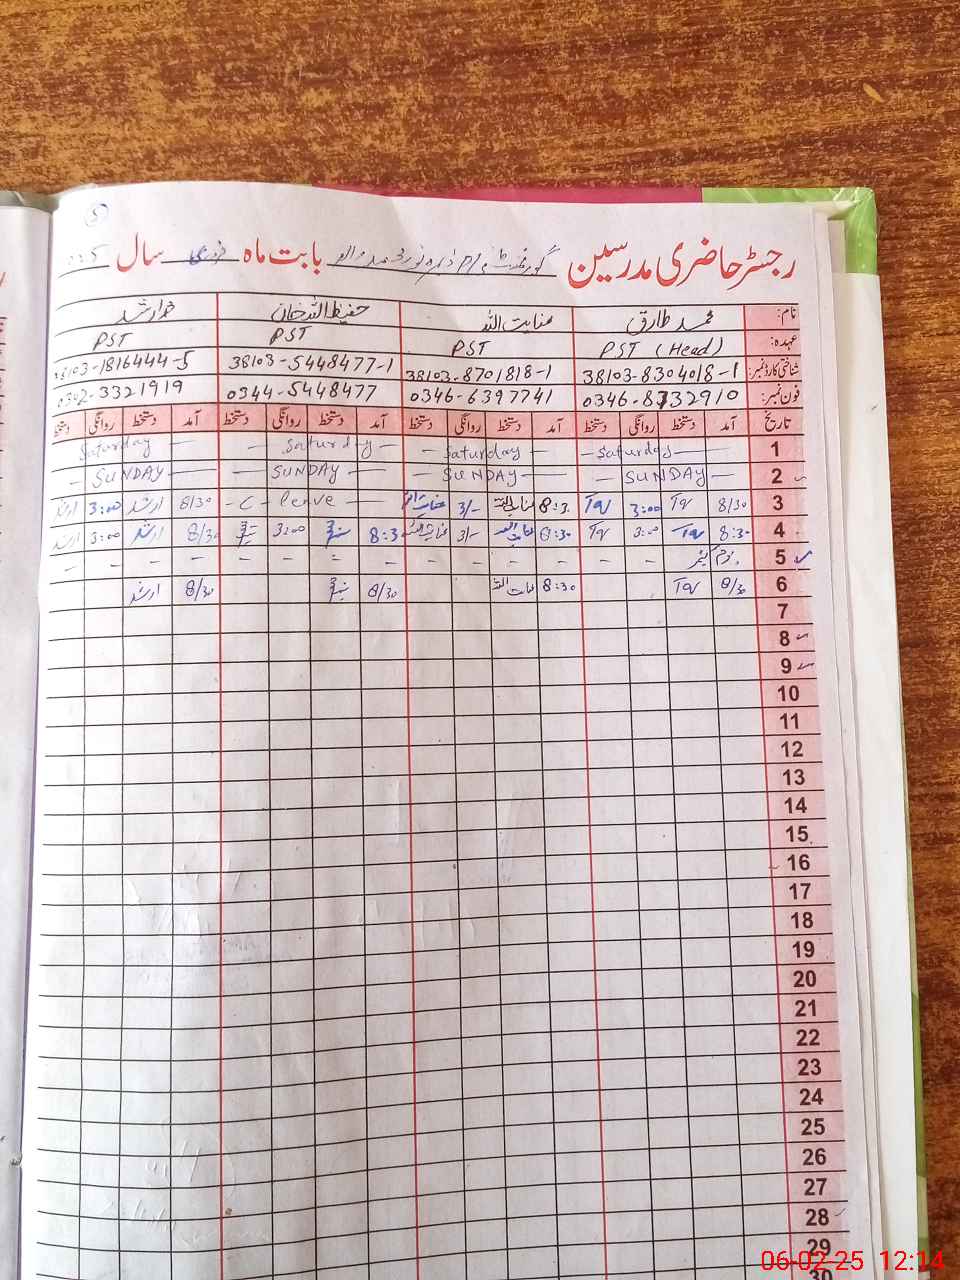 5
رجسٹر حاضری مدرسین گورنمنٹ بابت ماہ فروری سال
نام: محمد طارق عنایت اللہ حفیظ اللہ خان محمد ارشد
عہدہ: PST (Head) PST PST PST
شناختی کارڈ نمبر: 38103-8304018-1 38103-8701818-1 38103-5448477-1 38103-1816444-5
فون نمبر: 0346-8732910 0346-6397741 0344-5448477 0302-3321919
تاریخ آمد دستخط روانگی دستخط آمد دستخط روانگی دستخط آمد دستخط روانگی دستخط آمد دستخط روانگی دستخط
1 - Saturday - - Saturday - - Saturday - Saturday
2 - SUNDAY - - SUNDAY - - SUNDAY - - SUNDAY -
3 8/30 Tar 3:00 Tar 8:3. عنایت اللہ 3/- عنایت اللہ - C - leave - 8/30 ارشد 3:00 ارشد
4 8:30 Tar 3:00 Tar 8:30 عنایت اللہ 3/- عنایت اللہ 8:3 3:00 8/30 ارشد 3:00 ارشد
5 - - - - - - - - - - - - - -
6 8/30 Tar 8:30 عنایت اللہ 8/30 8/30 ارشد
7
8
9
10
11
12
13
14
15
16
17
18
19
20
21
22
23
24
25
26
27
28
29
30
06-02-25 12:14